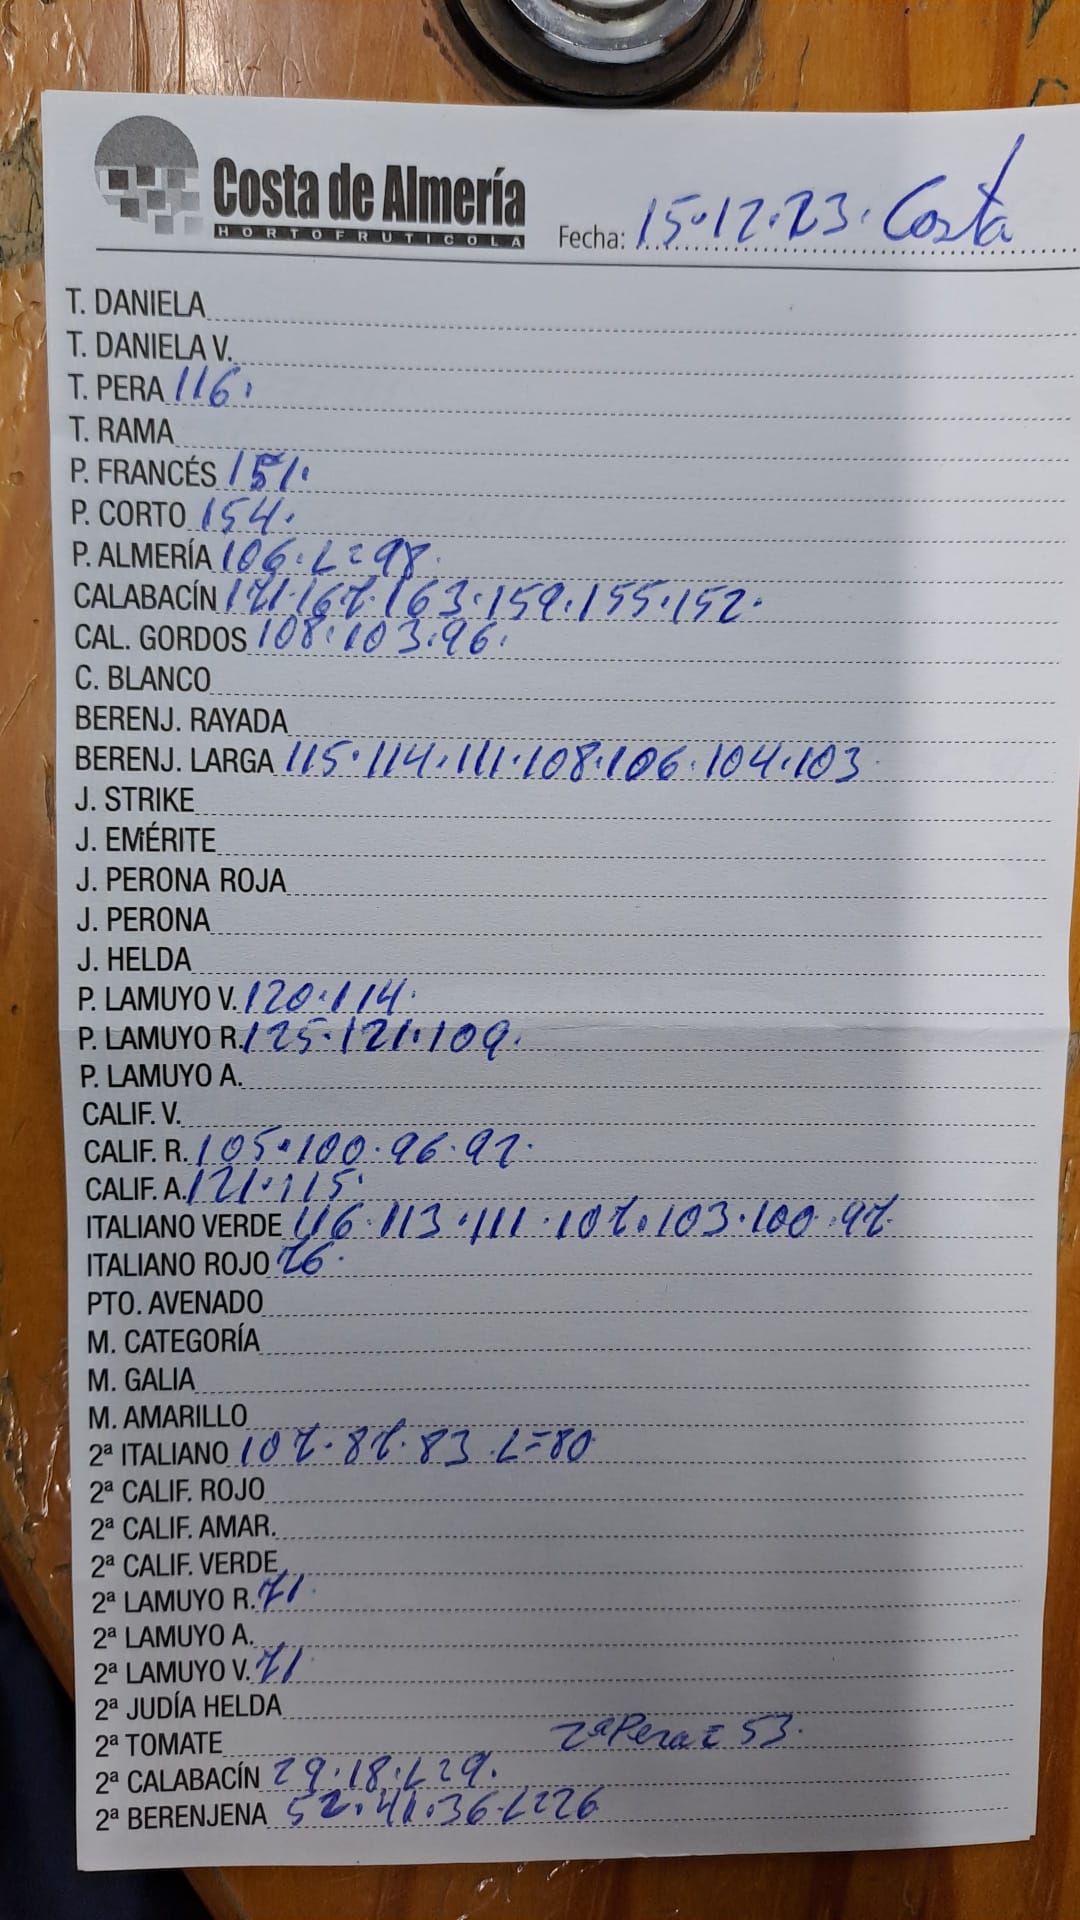 Costa de Almería
HORTOFRUTICOLA
Fecha: 15.12.23. Costa
T. DANIELA
T. DANIELA V.
T. PERA 116.
T. RAMA
P. FRANCÉS 151.
P. CORTO 154.
P. ALMERÍA 106. L=98.
CALABACÍN 171.167.163.159.155.152.
CAL. GORDOS 108.103.96.
C. BLANCO
BERENJ. RAYADA
BERENJ. LARGA 115.114.111.108.106.104.103
J. STRIKE
J. EMÉRITE
J. PERONA ROJA
J. PERONA
J. HELDA
P. LAMUYO V. 120.114.
P. LAMUYO R. 125.121.109.
P. LAMUYO A.
CALIF. V.
CALIF. R. 105.100.96.92.
CALIF. A. 121.115.
ITALIANO VERDE 116.113.111.107.103.100.97.
ITALIANO ROJO 76.
PTO. AVENADO
M. CATEGORÍA
M. GALIA
M. AMARILLO
2ª ITALIANO 107.87.83 L=80
2ª CALIF. ROJO
2ª CALIF. AMAR.
2ª CALIF. VERDE
2ª LAMUYO R. 71
2ª LAMUYO A.
2ª LAMUYO V. 71
2ª JUDÍA HELDA
2ª TOMATE 2ª Pera = 53.
2ª CALABACÍN 29.18.L=9.
2ª BERENJENA 52.41.36.L=26